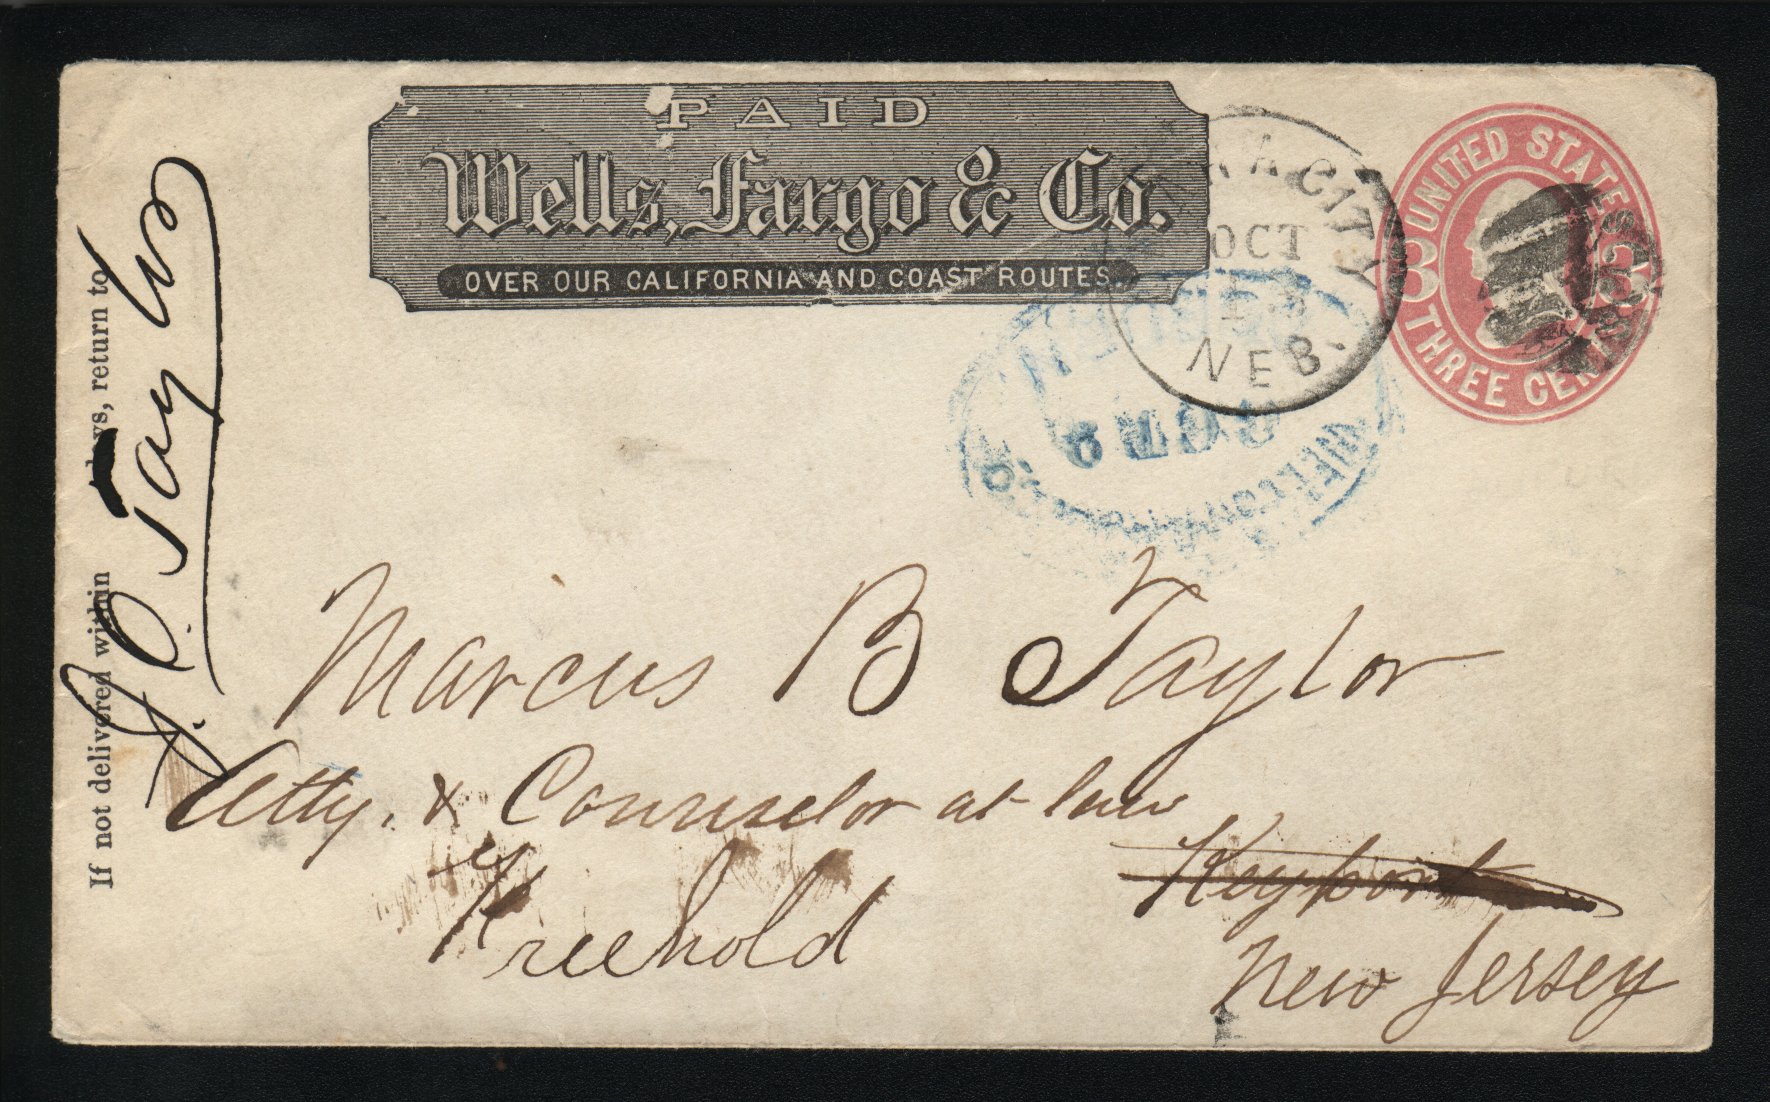 PAID
Wells, Fargo & Co.
OVER OUR CALIFORNIA AND COAST ROUTES.
CITY
OCT
NEB.
UNITED STATES
3 3
THREE CENTS
WELL
OCT 9
If not delivered within days, return to
J. O.
Marcus B Taylor
Atty. & Counselor at law
Freehold
Keyport
New Jersey